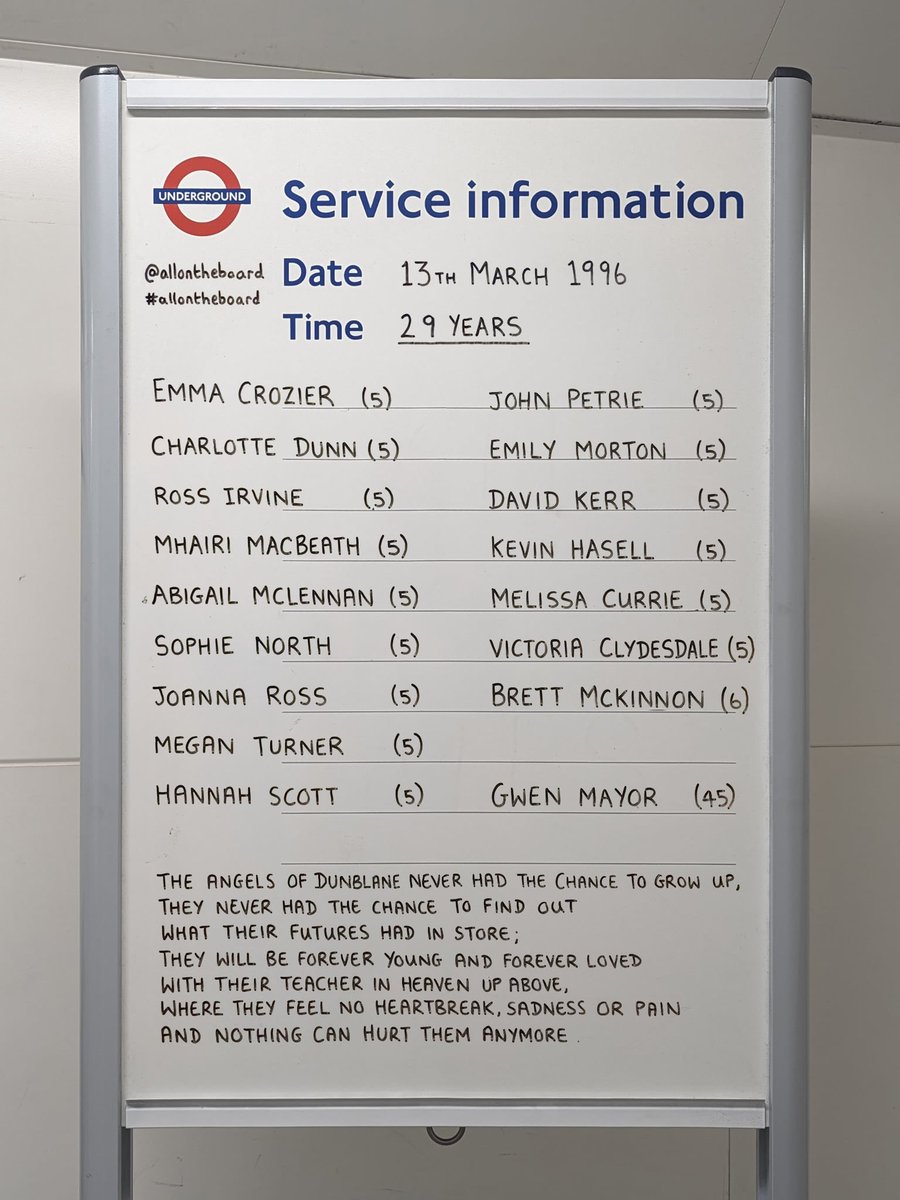 UNDERGROUND
Service information
@allontheboard
#allontheboard
Date 13TH MARCH 1996
Time 29 YEARS
EMMA CROZIER (5) JOHN PETRIE (5)
CHARLOTTE DUNN (5) EMILY MORTON (5)
ROSS IRVINE (5) DAVID KERR (5)
MHAIRI MACBEATH (5) KEVIN HASELL (5)
ABIGAIL MCLENNAN (5) MELISSA CURRIE (5)
SOPHIE NORTH (5) VICTORIA CLYDESDALE (5)
JOANNA ROSS (5) BRETT MCKINNON (6)
MEGAN TURNER (5)
HANNAH SCOTT (5) GWEN MAYOR (45)
THE ANGELS OF DUNBLANE NEVER HAD THE CHANCE TO GROW UP,
THEY NEVER HAD THE CHANCE TO FIND OUT
WHAT THEIR FUTURES HAD IN STORE;
THEY WILL BE FOREVER YOUNG AND FOREVER LOVED
WITH THEIR TEACHER IN HEAVEN UP ABOVE,
WHERE THEY FEEL NO HEARTBREAK, SADNESS OR PAIN
AND NOTHING CAN HURT THEM ANYMORE.